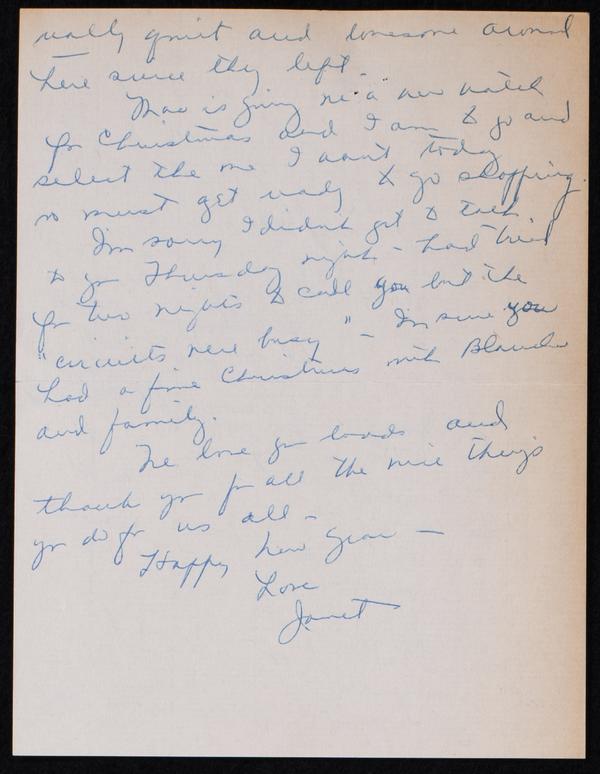 really quiet and lonesome around
here since they left.
Mac is giving me a new watch
for Christmas and I am to go and
select the one I want today
so must get ready to go shopping.
I'm sorry I didn't get to talk
to you Thursday night - had tried
for two nights to call you but the
"circuits were busy" - I'm sure you
had a fine Christmas with Blanche
and family.
We love you loads and
thank you for all the nice things
you do for us all -
Happy New Year -
Love
Janet